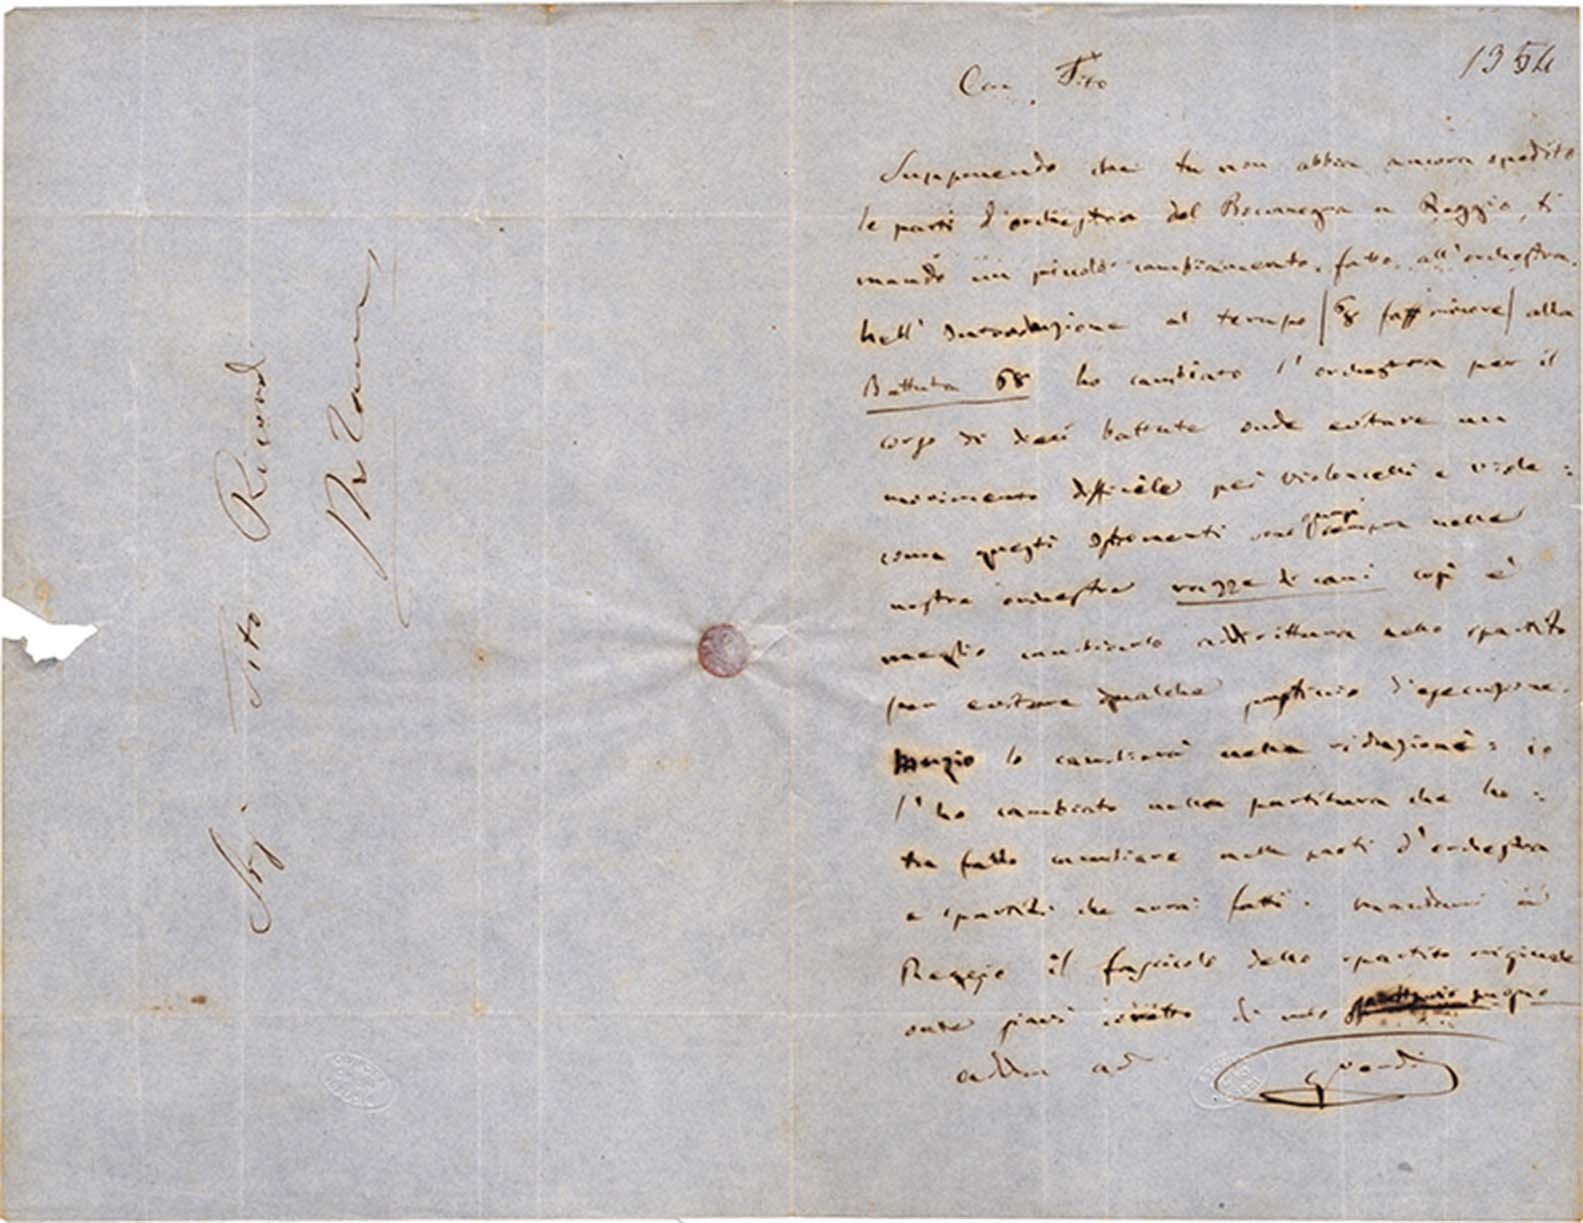 Sig. Tito Ricordi
Milano
1354
Caro Tito
Supponendo che tu non abbia ancora spedito
le parti d'orchestra del Bocanegra a Reggio, ti
mando un piccolo cambiamento fatto all'orchestra.
Nell' Introduzione al tempo (6/8 fa# minore) alla
Battuta 68 ho cambiato l'orchestra per il
corso di dieci battute onde evitare un
movimento difficile pei violoncelli e viole:
come questi stromenti sono quasi sempre nelle
nostre orchestre razze di cani così è
meglio cambiarlo addirittura nello spartito
per evitare qualche pasticcio d'esecuzione.
Muzio lo cambierà nella riduzione: io
l'ho cambiato nella partitura che ho:
tu fallo cambiare nelle parti d'orchestra
e spartiti che avrai fatti. Mandami a
Reggio il fascicolo dello spartito originale
onde siavi scritto di mio pugno
addio ad
GVerdi